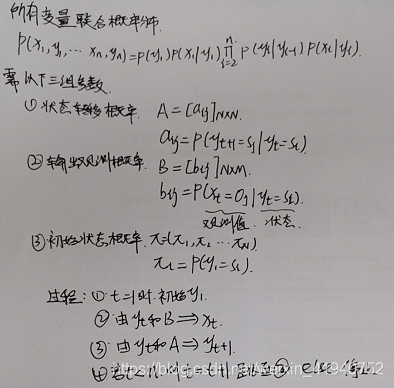 所有变量联合概率分布.
P(x₁,y₁,… xₙ,yₙ)=P(y₁)P(x₁|y₁)∏ⁿᵢ₌₂ P(yᵢ|yᵢ₋₁)P(xᵢ|yᵢ).
需以下三组参数.
① 状态转移概率. A=[aᵢⱼ]N×N.
aᵢⱼ=P(yₜ₊₁=sⱼ|yₜ=sᵢ)
② 输出观测概率. B=[bᵢⱼ]N×M.
bᵢⱼ=P(xₜ=Oⱼ|yₜ=sᵢ).
观测值. 状态.
③ 初始状态概率. π=(π₁,π₂…πN)
πᵢ=P(y₁=sᵢ).
过程: ① t=1时. 初始y₁.
② 由yₜ和B⟹xₜ.
③ 由yₜ和A⟹yₜ₊₁.
④ 若t<n, 则t=t+1, ②, else 停止